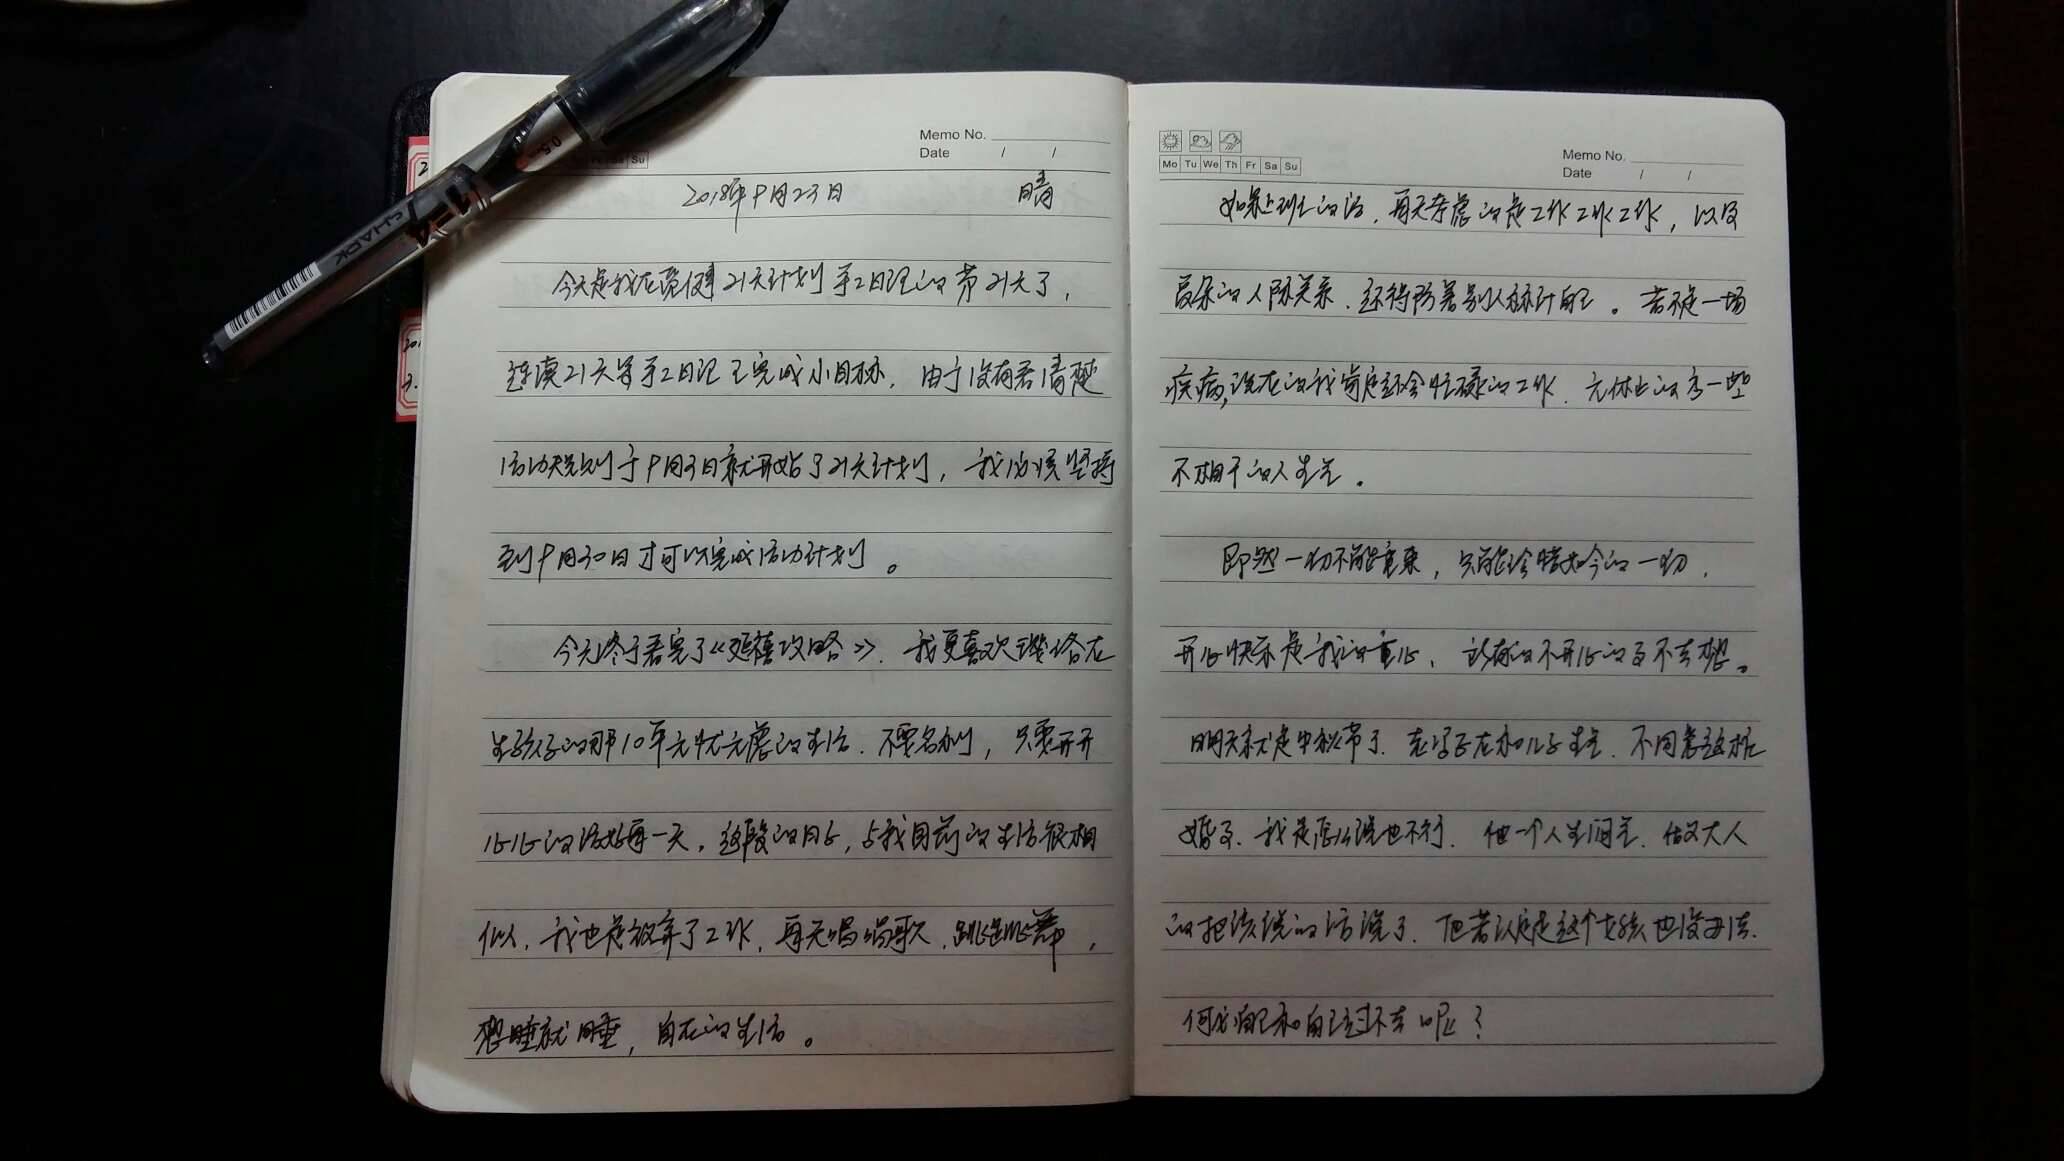 0.5
Su
Memo No.
Date / /
2018年9月23日 晴
今天是我在 21天计划手工日记的第21天了,
连续21天写手工日记已完成小目标,由于没有看清楚
活动规则于9月3日就开始了21天计划,我必须坚持
到9月30日才可以完成活动计划。
今天终于看完了《延禧攻略》,我更喜欢璎珞在
生孩子的那10年无忧无虑的生活,不要名利,只要开开
心心的活好每一天。这段的日子,与我目前的生活很相
似,我也是放弃了工作,每天唱唱歌,跳跳舞,
想睡就睡,自在的生活。
Mo Tu We Th Fr Sa Su
Memo No.
Date / /
如果上班的话,每天考虑的是工作工作工作,以及
复杂的人际关系,还得防着别人算计自己。若不是一场
疾病,现在的我肯定还会忙碌的工作,无休止的与一些
不相干的人生气。
即然一切不能重来,只能珍惜如今的一切,
开心快乐是我的重心,所有的不开心的事不去想。
明天就是中秋节了,老公子在和儿子生气,不同意这桩
婚事,我是怎么说也不行,他一个人生闷气,做父大人
的把该说的话说了,他若认定是这个女孩也没办法,
何必自己和自己过不去呢?